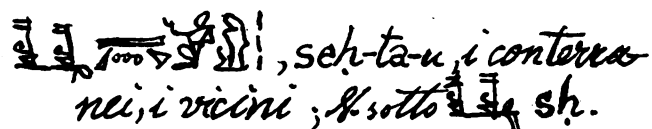 , seḥ-ta-u, i conterra
nei, i vicini; V. sotto sḥ.